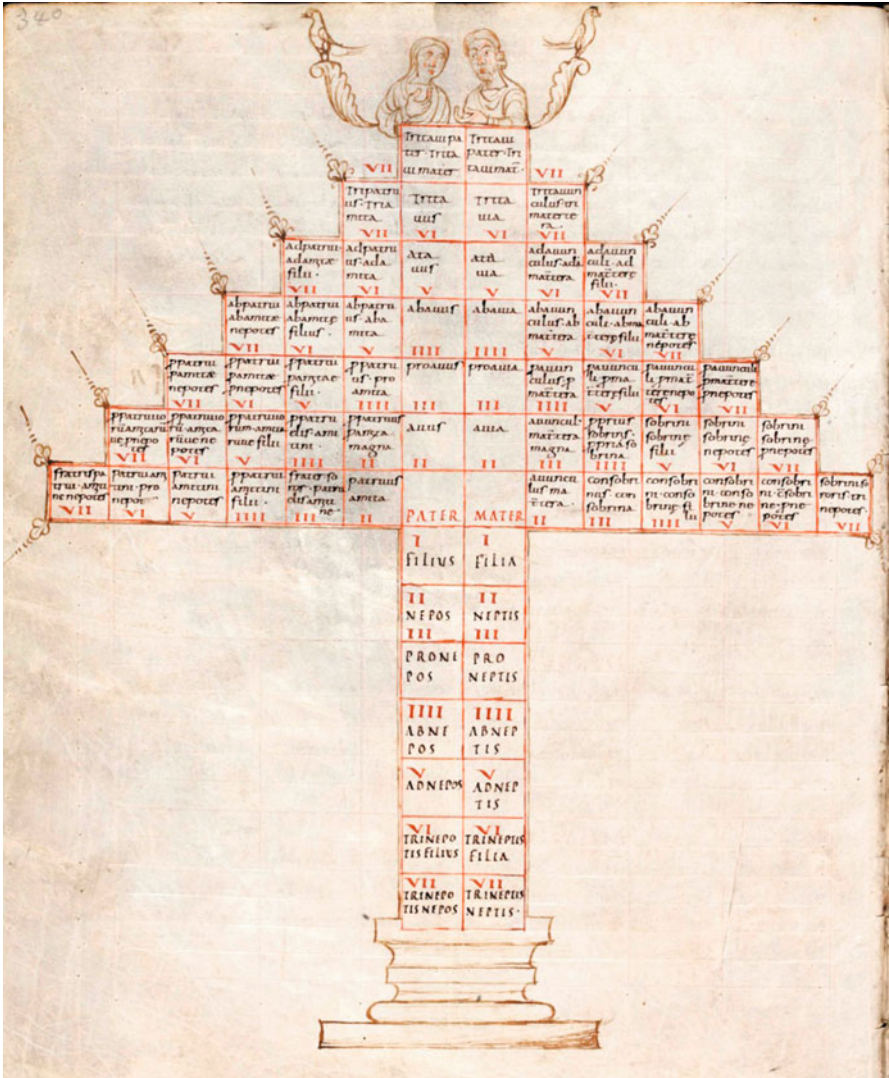 340
Tritaui pa
ter · trita
ui mater
Tritaui
pater · tri
taui mat̄.
VII
VII
Tripatru
us · tria
mita
VII
Trita
uus
VI
Trita
uia
VI
Tritauun
culus · tri
materte
ra
VII
adpatrui ·
adamitæ
filii ·
VII
adpatru
us · ada
mita
VI
ata
uus
V
ata
uia
V
adauun
culus · ada
mat̄tera
VI
adauun
culi · ad
mat̄tere
filii ·
VII
abpatrui
abamitæ
nepotes
VII
abpatrui
abamitæ
filius ·
VI
abpatru
us · aba
mita
V
abauus
IIII
abauia
IIII
abauun
culus · ab
mat̄tera
V
abauun
culi · abma
t̄tere filii
VI
abauun
culi · ab
mat̄tere
nepotes
VII
ppatrui
pamitæ
nepotes
VII
ppatrui
pamitæ
pnepotes
VI
ppatrui
pamitæ
filii ·
V
ppatru
us · pro
amita
IIII
proauus
III
proauia
III
pauun
culus · p
mat̄tera
IIII
pauuncu
li · pma
t̄tere filii
V
pauuncu
li · pmat̄
tere nepo
tes
VI
pauunculi
pmat̄tere
pnepotes
VII
VII
VI
V
ppatru
elis · ami
tini ·
IIII
ppatruus
pamita
magna
II
auus
II
auia
II
auuncul ·
mat̄tera
magna
III
pprius
sobrinus ·
ppria so
brina
IIII
sobrini
sobrine
filii
V
sobrini
sobrine
nepotes
VI
sobrini
sobrine
pnepotes
VII
VII
patrui am
tini · pro
nepot
VI
patrui
amitini
nepotes
V
ppatrui
amitini
filii ·
IIII
III
patruus
amita
II
PATER
MATER
auuncu
lus ma
t̄tera ·
II
consobri
nus · con
sobrina
III
consobri
ni · conso
brine fi
lii
IIII
consobri
ni · conso
brine ne
potes
V
consobri
ni · c̄sobri
ne · pne
potes
VI
sobrini so
roris · tri
nepotes ·
VII
I
I
FILIUS
FILIA
II
II
NEPOS
NEPTIS
III
III
PRONE
POS
PRO
NEPTIS
IIII
IIII
ABNE
POS
ABNEP
TIS
V
V
ADNEPOS
ADNEP
TIS
VI
VI
TRINEPO
TIS FILIUS
TRINEPTIS
FILIA
VII
VII
TRINEPO
TIS NEPOS
TRINEPTIS
NEPTIS ·